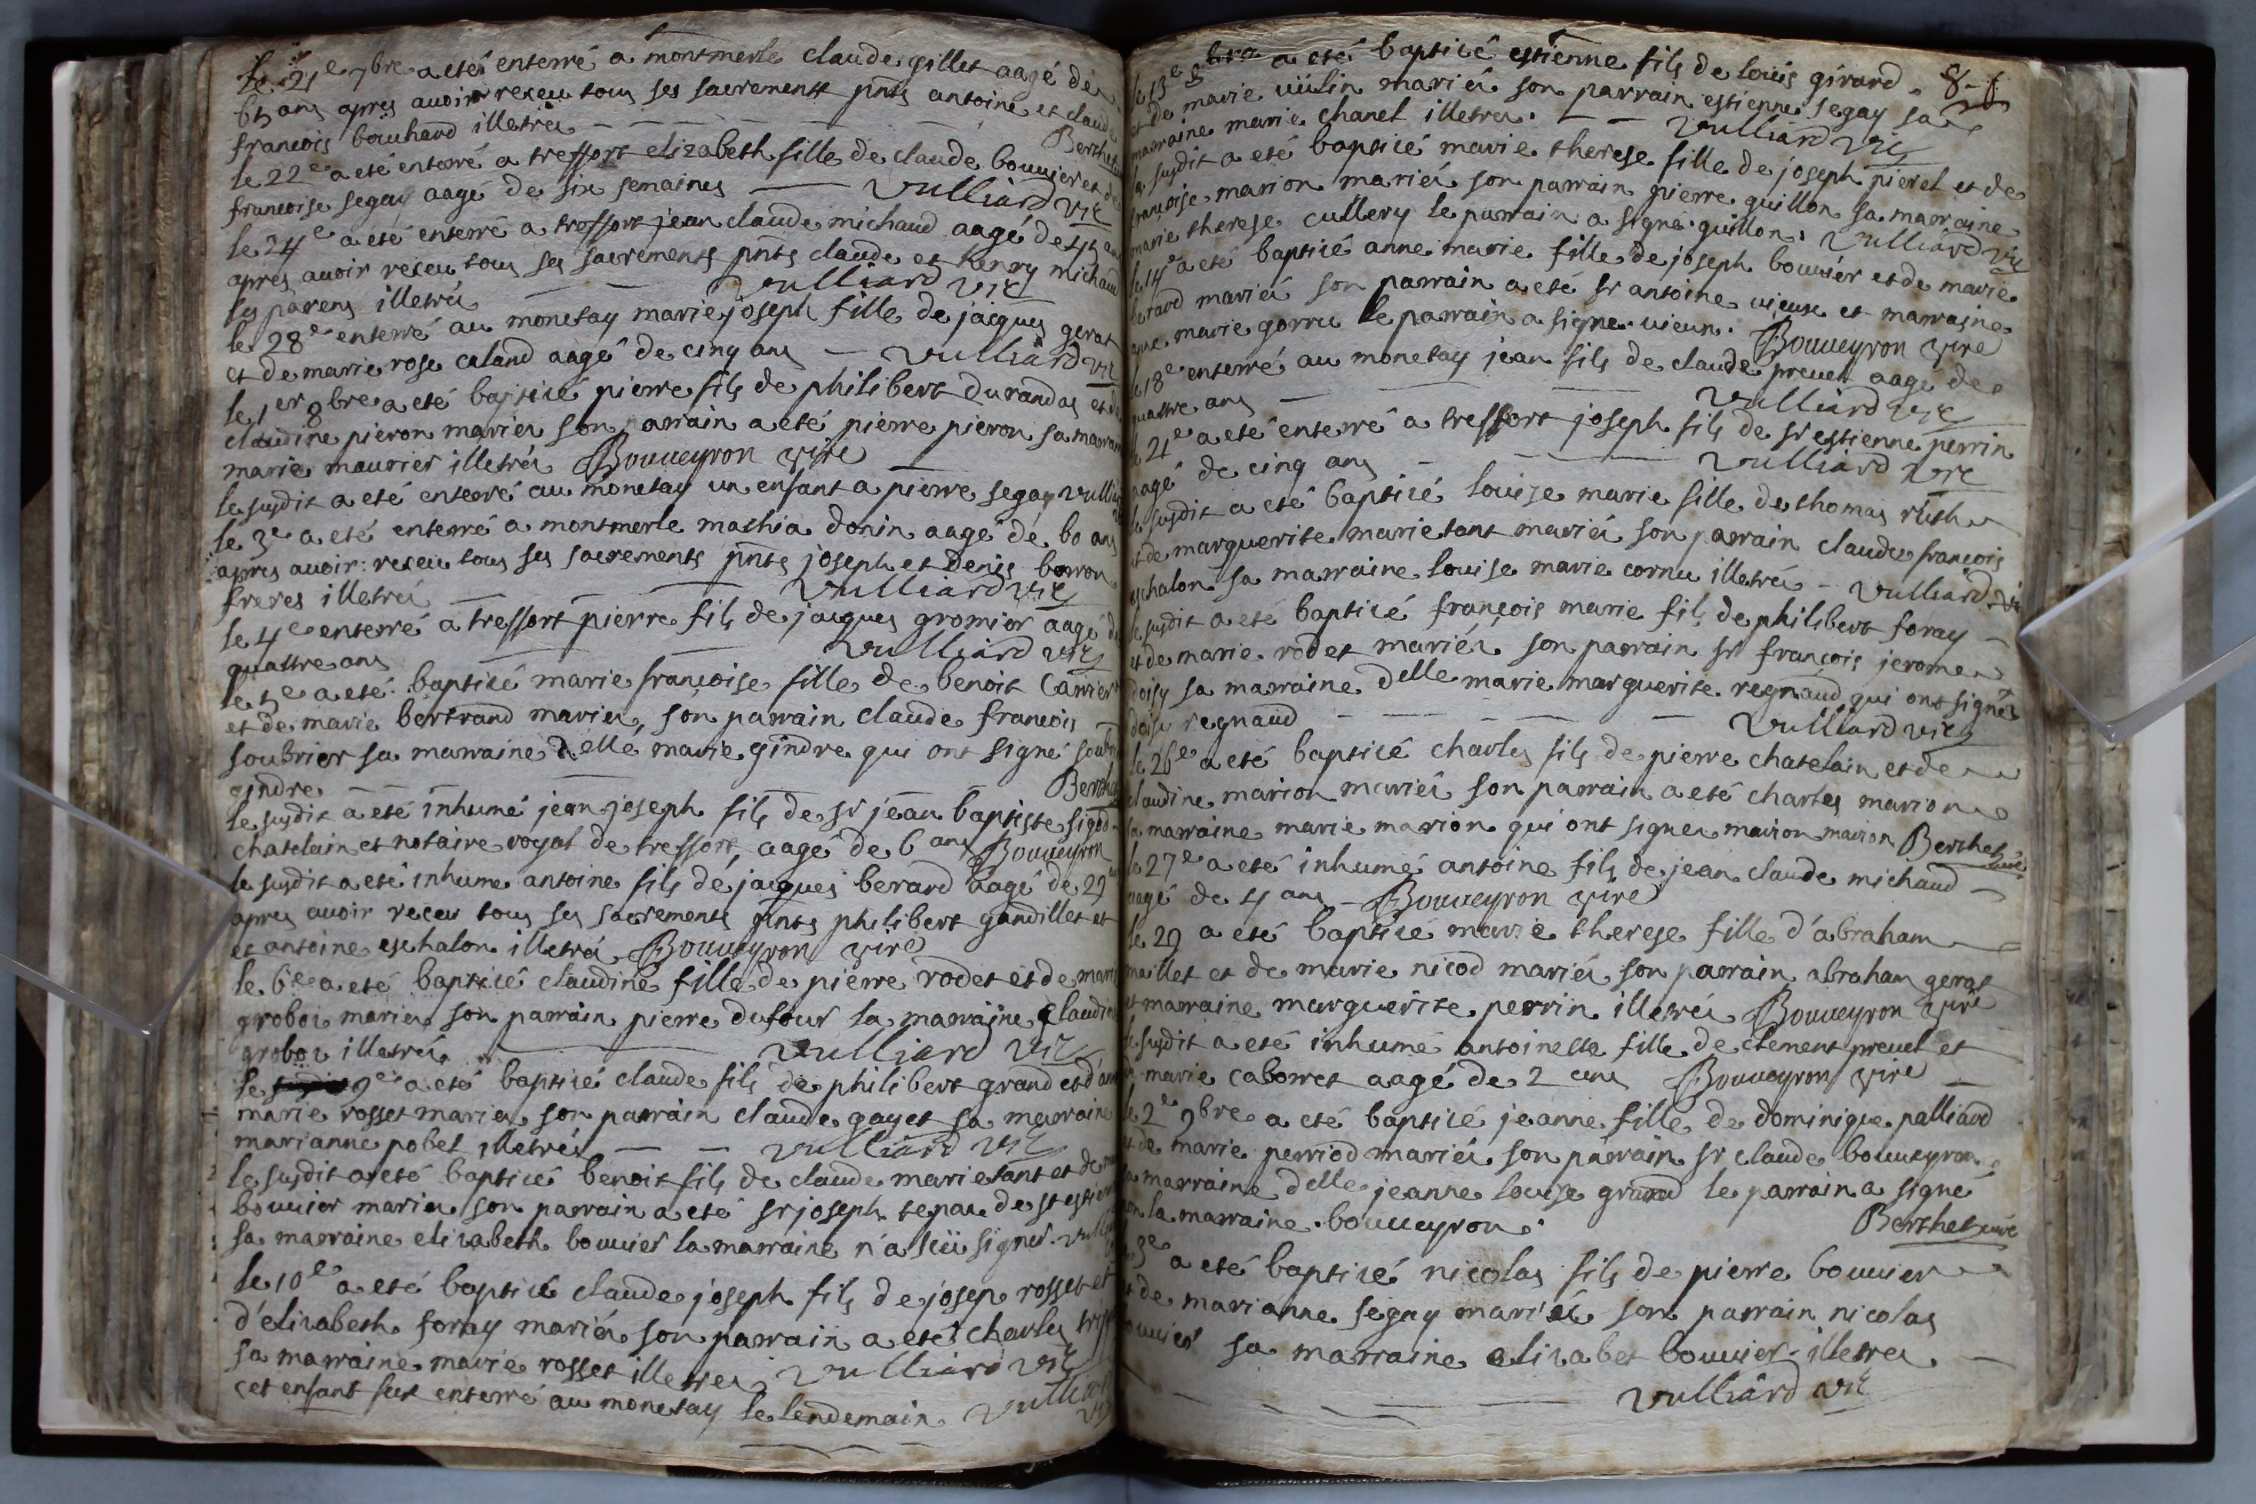 le 21e 7bre a eté enterré a montmerle claude gillet aagé de
65 ans apres auoir receu tous ses sacrements pnts antoine et claude
francois bouchard illetréz Berthet
le 22e a eté enterré a treffort elizabeth fille de claude bouuier et de
francoise segay aagé de six semaines vulliard vic
le 24e a eté enterré a treffort jean claude michaud aagé de 45 ans
apres auoir receu tous ses sacrements pnts claude et henry michaud
ses parens illetréz vulliard vic
le 28e enterré au monetay marie joseph fille de jacques gerat
et de marie rose caland aagé de cinq ans vulliard vic
le 1er 8bre a eté baptizé pierre fils de philibert durandas et de
claudine pieron mariéz son parrain a eté pierre pieron sa marraine
marie maurier illetréz Bouueyron vire
le susdit a eté enterré au monetay un enfant a pierre segay vulliard
le 3e a eté enterré a montmerle mathia donin aagé de 60 ans
apres auoir receu tous ses sacrements pnts joseph et denis borron
freres illetréz vulliard vic
le 4e enterré a treffort pierre fils de jacques gromier aagé de
quattre ans vulliard vic
le 5e a eté baptizé marie françoise fille de benoit Carrier
et de marie bertrand mariéz, son parrain claude francois
soubrier sa marraine delle marie gindre qui ont signé soubrier
gindre Berthet
le susdit a eté inhumé jean joseph fils de sr jean baptiste sigod
chatelain et notaire royal de treffort, aagé de 6 ans Bouueyron
le susdit a eté inhumé antoine fils de jacques berard aagé de 29
apres auoir receu tous ses sacrements pnts philibert gandillet et
et antoine eschalon illetréz Bouueyron vire
le 6e a eté baptizé claudine fille de pierre rodet et de marie
groboz mariéz son parrain pierre dufour la marraine claudine
groboz illetréz vulliard vic
le 9e a eté baptizé claude fils de philibert grand et d'anne
marie rosset mariéz son parrain claude gayet sa marraine
marianne pobel illetréz vulliard vic
le susdit a eté baptizé benoit fils de claude marietant et de
bouuier mariéz son parrain a eté sr joseph tepau de st estienne
sa marraine elizabeth bouuier la marraine n'a sceü signer. vulliard
le 10e a eté baptizé claude joseph fils de josep rosset et
d'elizabeth foray mariéz son parrain a eté charles
sa marraine marie rosset illetréz vulliard vic
cet enfant fut enterré au monetay le lendemain vulliard vic
8-f
le 13e 8bre a eté baptizé estienne fils de louis girard
et de marie viülin mariéz son parrain estienne segay sa
marraine marie chanel illetréz. vulliard vic
le susdit a eté baptizé marie therese fille de joseph pierel et de
françoise marion mariéz son parrain pierre guillon sa marraine
marie therese cullery le parrain a signé guillon. vulliard vic
le 14e a eté baptizé anne marie fille de joseph bouuier et de marie
berard mariéz son parrain a eté sr antoine uieux et marraine
anne marie gorru le parrain a signe. uieux. Bouueyron vire
le 18e enterré au monetay jean fils de claude preuel aagé de
quattre ans vulliard vic
le 21e a eté enterré a treffort joseph fils de sr estienne perrin
aagé de cinq ans vulliard vic
le susdit a eté baptizé louise marie fille de thomas ruth
et de marguerite marietant mariéz son parrain claude françois
eschalon sa marraine louise marie cornu illetréz vulliard vic
le susdit a eté baptizé françois marie fils de philibert foray
et de marie rodet mariéz son parrain sr françois jerome
doisy sa marraine delle marie marguerite regnaud qui ont signéz
doisy regnaud vulliard vic
le 26e a eté baptizé charles fils de pierre chatelain et de
claudine marion mariéz son parrain a eté charles marion
sa marraine marie marion qui ont signéz marion marion Berthet curé
le 27e a eté inhumé antoine fils de jean claude michaud
aagé de 4 ans Bouueyron vire
le 29 a eté baptizé marie therese fille d'abraham
maillet et de marie nicod mariéz son parrain abraham gerat
et marraine marguerite perrin illetréz Bouueyron vire
le susdit a eté inhumé antoinette fille de clement preuel et
de marie caborret aagé de 2 ans Bouueyron vire
le 2e 9bre a eté baptizé jeanne fille de dominique palliard
et de marie perriod mariéz son parrain sr claude bouueyron
sa marraine delle jeanne louise grand le parrain a signé
non la marraine. bouueyron. Berthet curé
le 3e a eté baptizé nicolas fils de pierre bouuier
et de marianne segay mariéz son parrain nicolas
bouuier sa marraine elizabet bouuier illetréz
vulliard vic